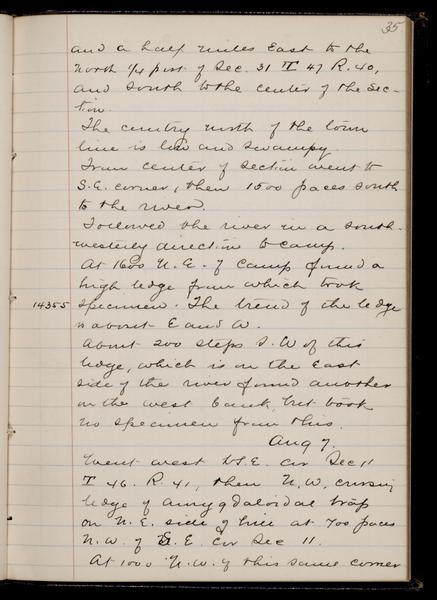 35
and a half miles East to the
North 1/4 post of Sec. 31 T 47 R. 40,
and South to the center of the Sec-
tion.
The country north of the town
line is low and swampy.
From center of section went to
S.E. corner, then 1500 paces south
to the river.
Followed the river in a south-
westerly direction to camp.
At 1600 N.E. of camp found a
high ledge from which took
14355 specimen. The trend of the ledge
is about E and W.
About 200 steps S.W of this
ledge, which is on the East
side of the river found another
on the west bank, but took
no specimen from this.
Aug 7.
Went west to S.E. cor Sec 11
T 46. R. 41, then N.W. crossing
ledge of amygdaloidal trap
on N.E. side of line at 700 paces
N.W. of S.E. cor Sec 11.
At 1000 N.W. of this same corner